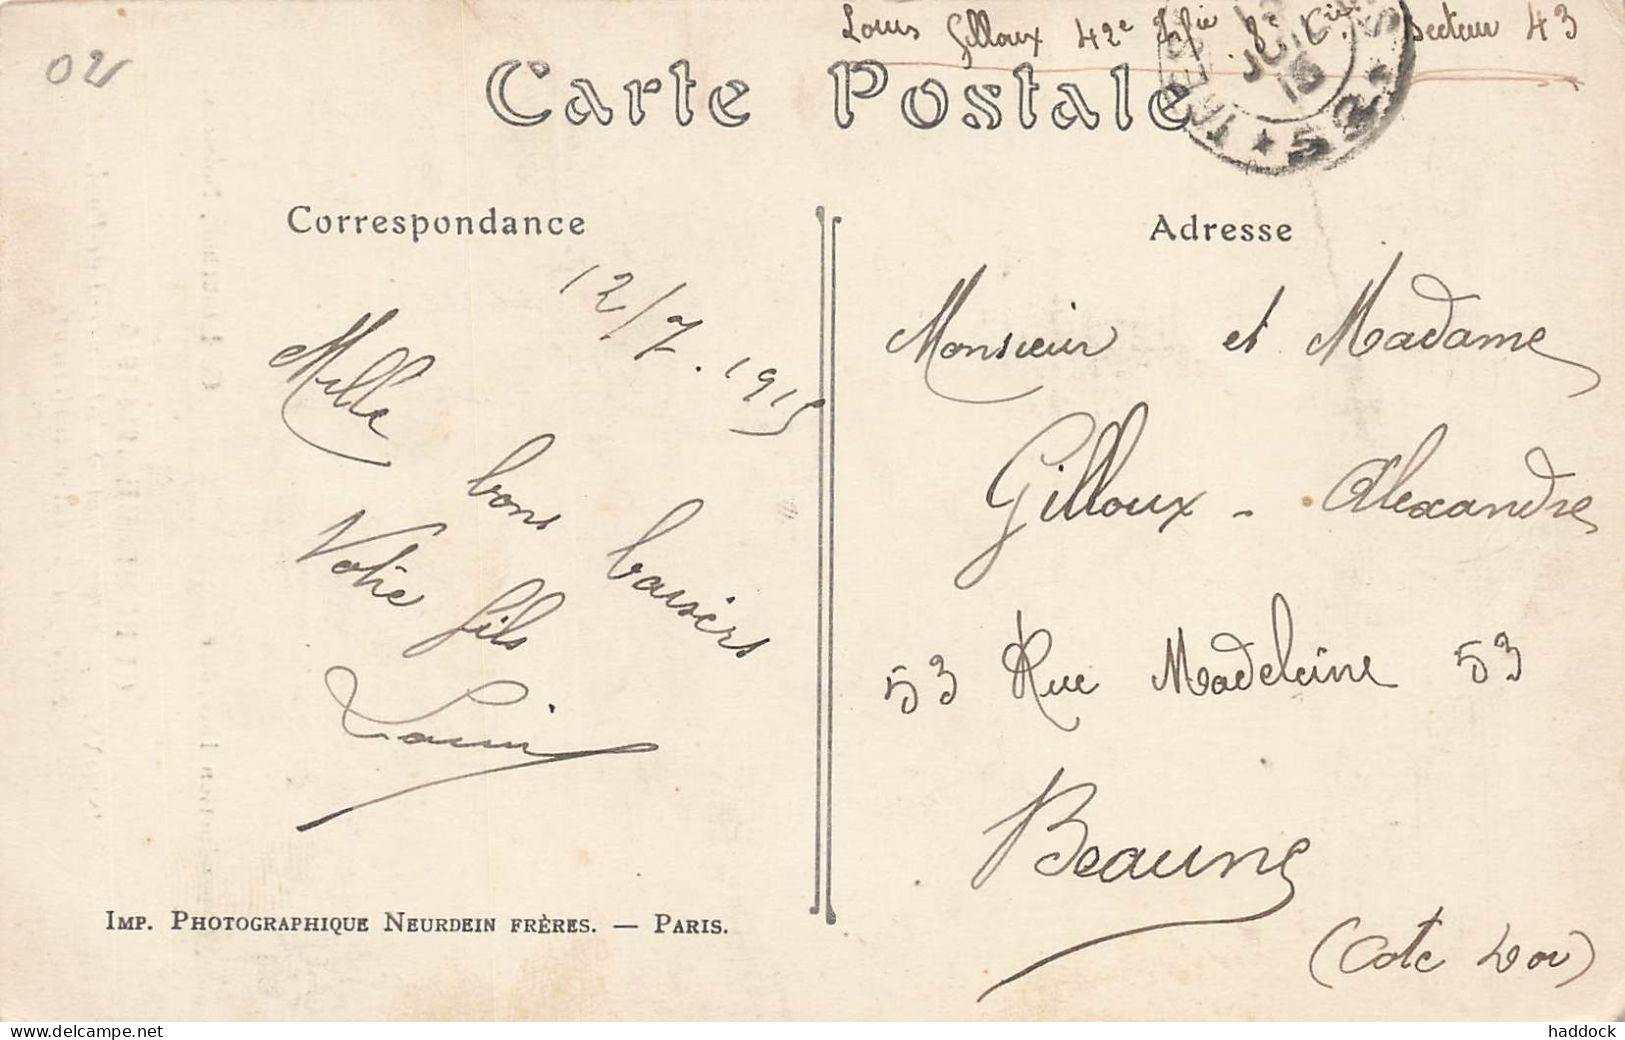 Louis Gilloux 42e Infie 8e Cie Secteur 43
02
Carte Postale
Correspondance
12/7.1915
Mille
bons baisers
Votre fils
Louis
Imp. Photographique Neurdein frères. — Paris.
Adresse
Monsieur et Madame
Gilloux - Alexandre
53 Rue Madeleine 53
Beaune
(Cote Dor)
www.delcampe.net
haddock